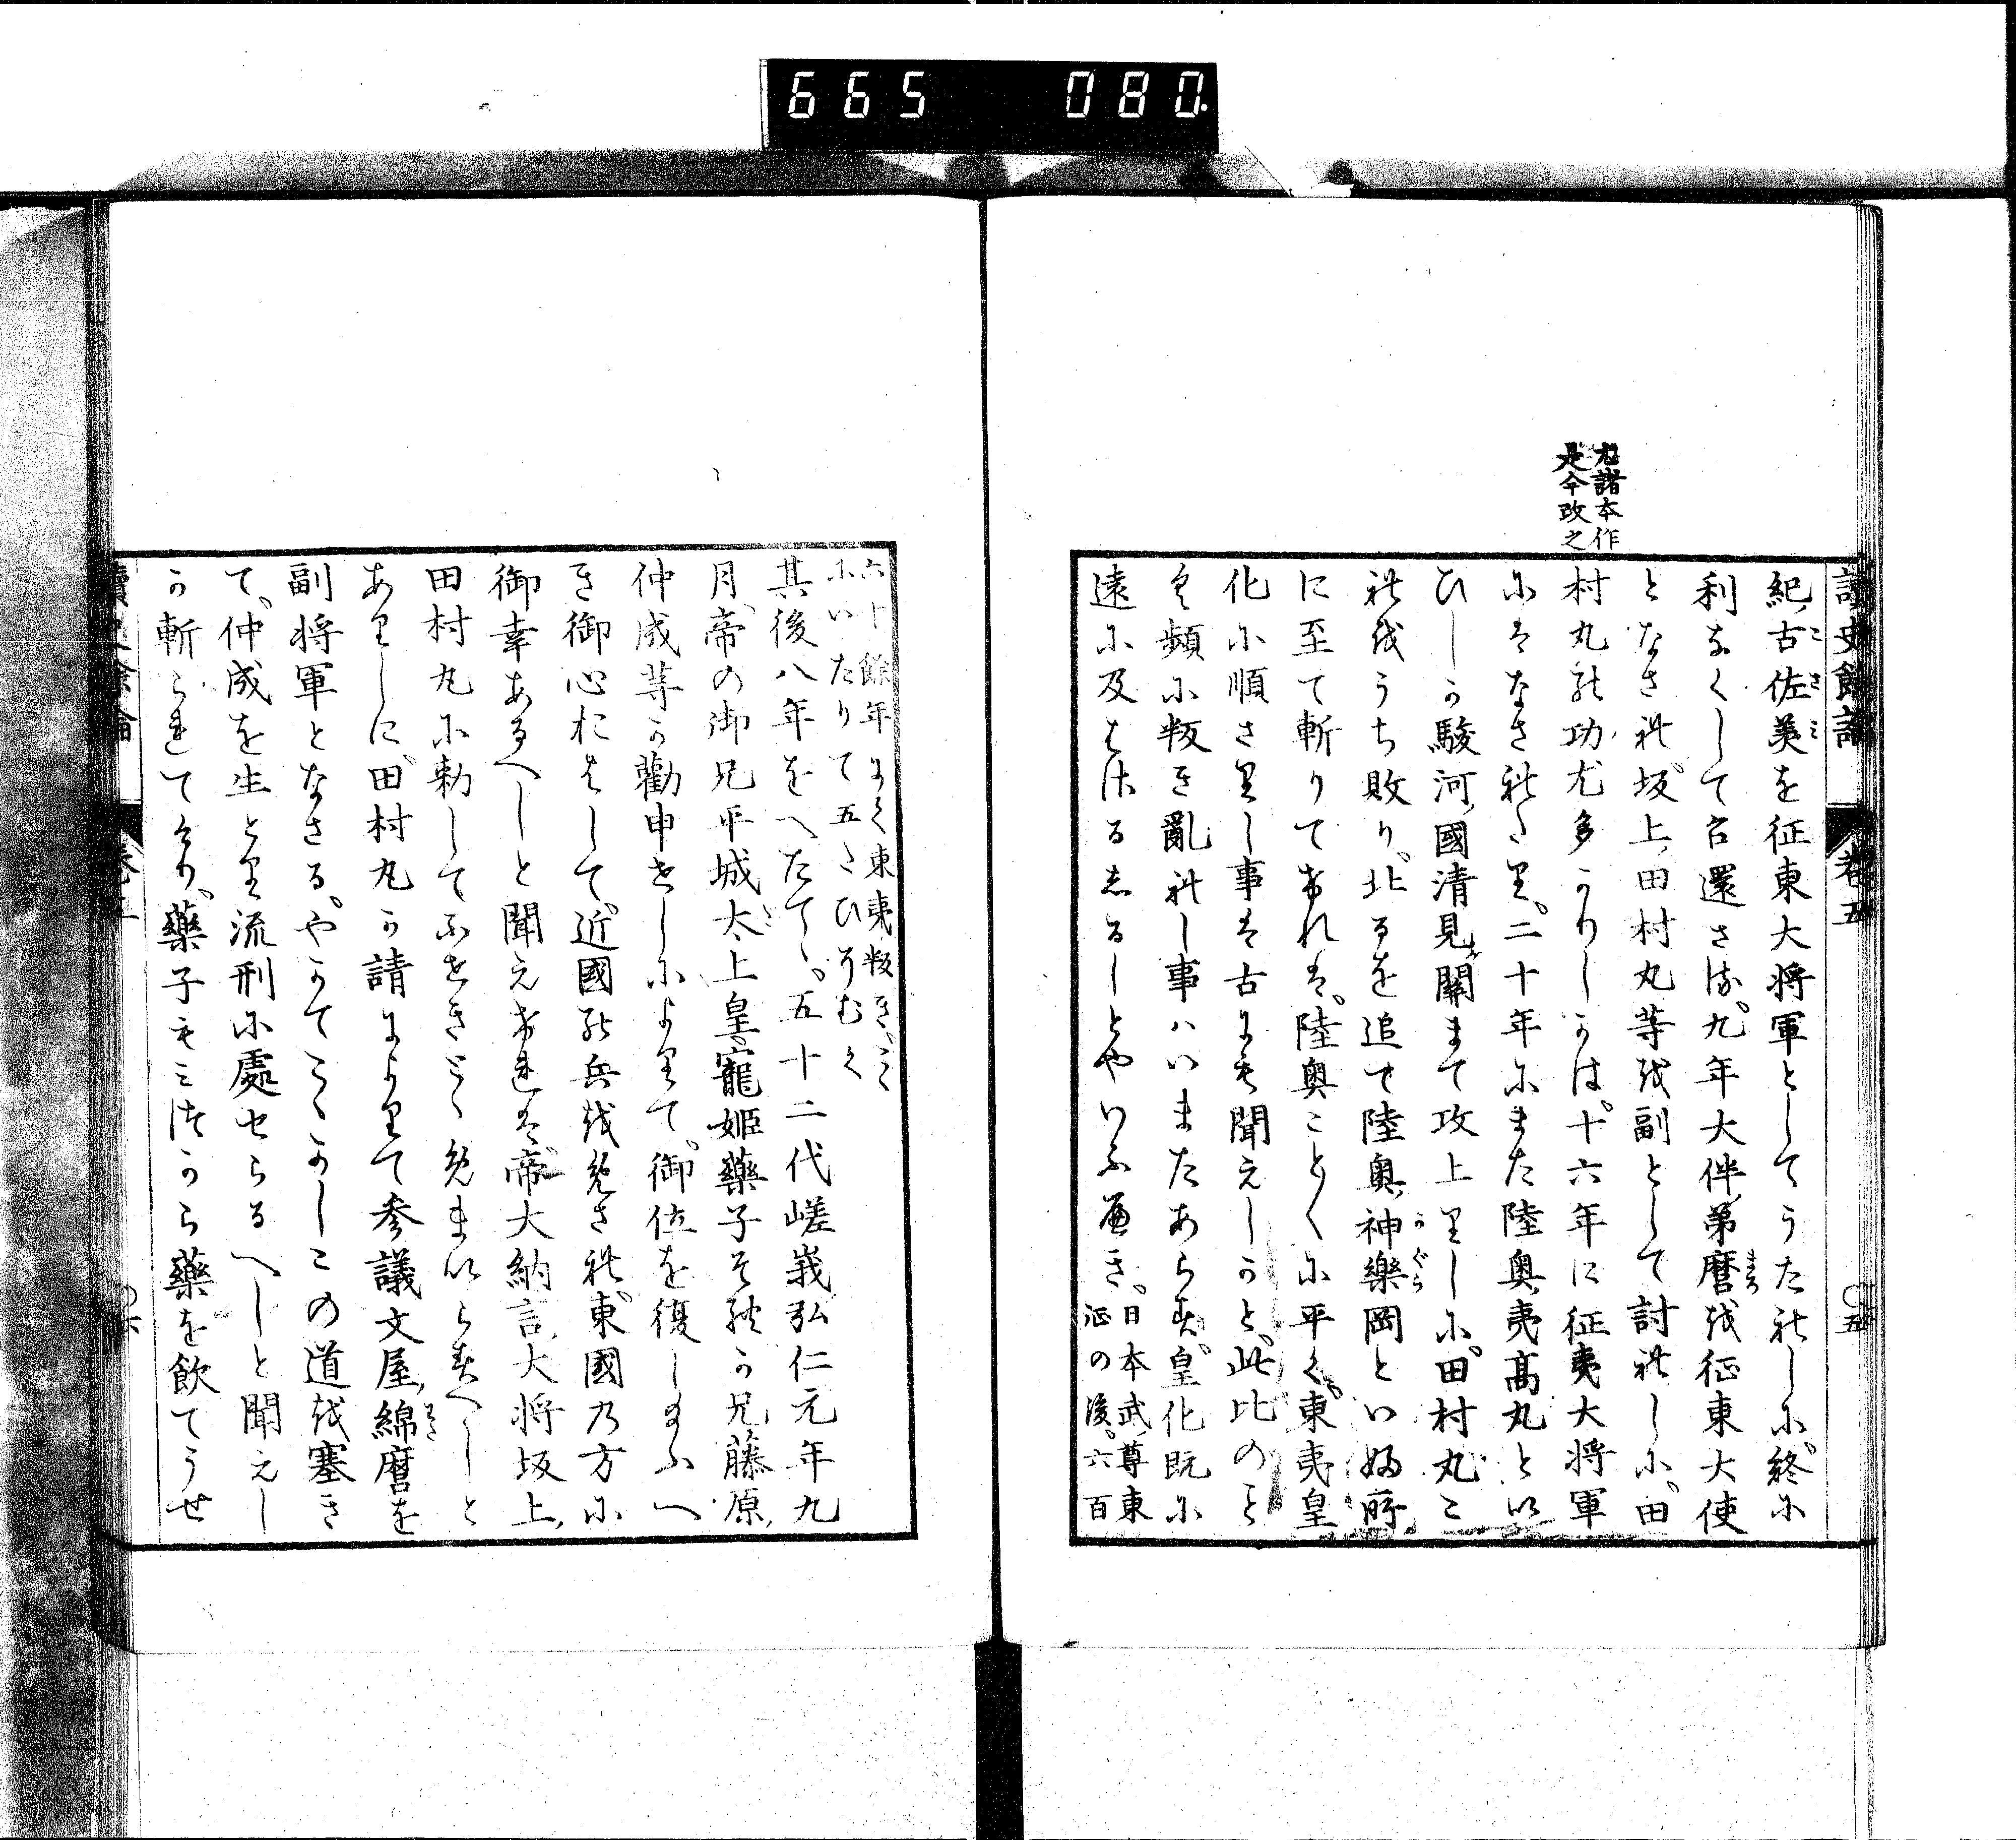 665 080.
讀史餘論 卷五 〇五
尤諸本作
是今改之
紀古佐美を征東大将軍としてうたれしに終に
利なくして召還さる。九年大伴弟麿を征東大使
となされ坂上田村丸等を副として討れしに。田
村丸の功尤多かりしかは。十六年に征夷大将軍
にはなされたり。二十年にまた陸奥夷高丸とい
ひしか駿河國清見關まて攻上りしに。田村丸こ
れをうち敗り。北るを追て陸奥神樂岡といふ所
に至て斬りてけれは。陸奥ことくに平く。東夷皇
化に順さりし事は古にも聞えしかと。此比のこと
く頻に叛き亂れし事ハいまたあらす。皇化既に
遠に及はさるしるしとやいふへき。日本武尊東
征の後。六百
六十餘年にして東夷叛き。こゝ
にいたりて五たひそむく
其後八年をへたてゝ。五十二代嵯峩弘仁元年九
月。帝の御兄平城太上皇。寵姫藥子その兄藤原
仲成等か勸申せしによりて。御位を復し給ふへ
き御心おはして。近國の兵を免され。東國乃方に
御幸あるへしと聞えけれは。帝大納言大将坂上
田村丸に勅してふせきとゝめまいらすへしと
ありしに。田村丸か請によりて参議文屋綿麿を
副将軍となさる。やかてこゝかしこの道を塞き
て。仲成を生とり流刑に處せらるへしと聞えし
か斬られてけり。藥子もみつから藥を飲てうせ
讀史餘論 卷五 〇六